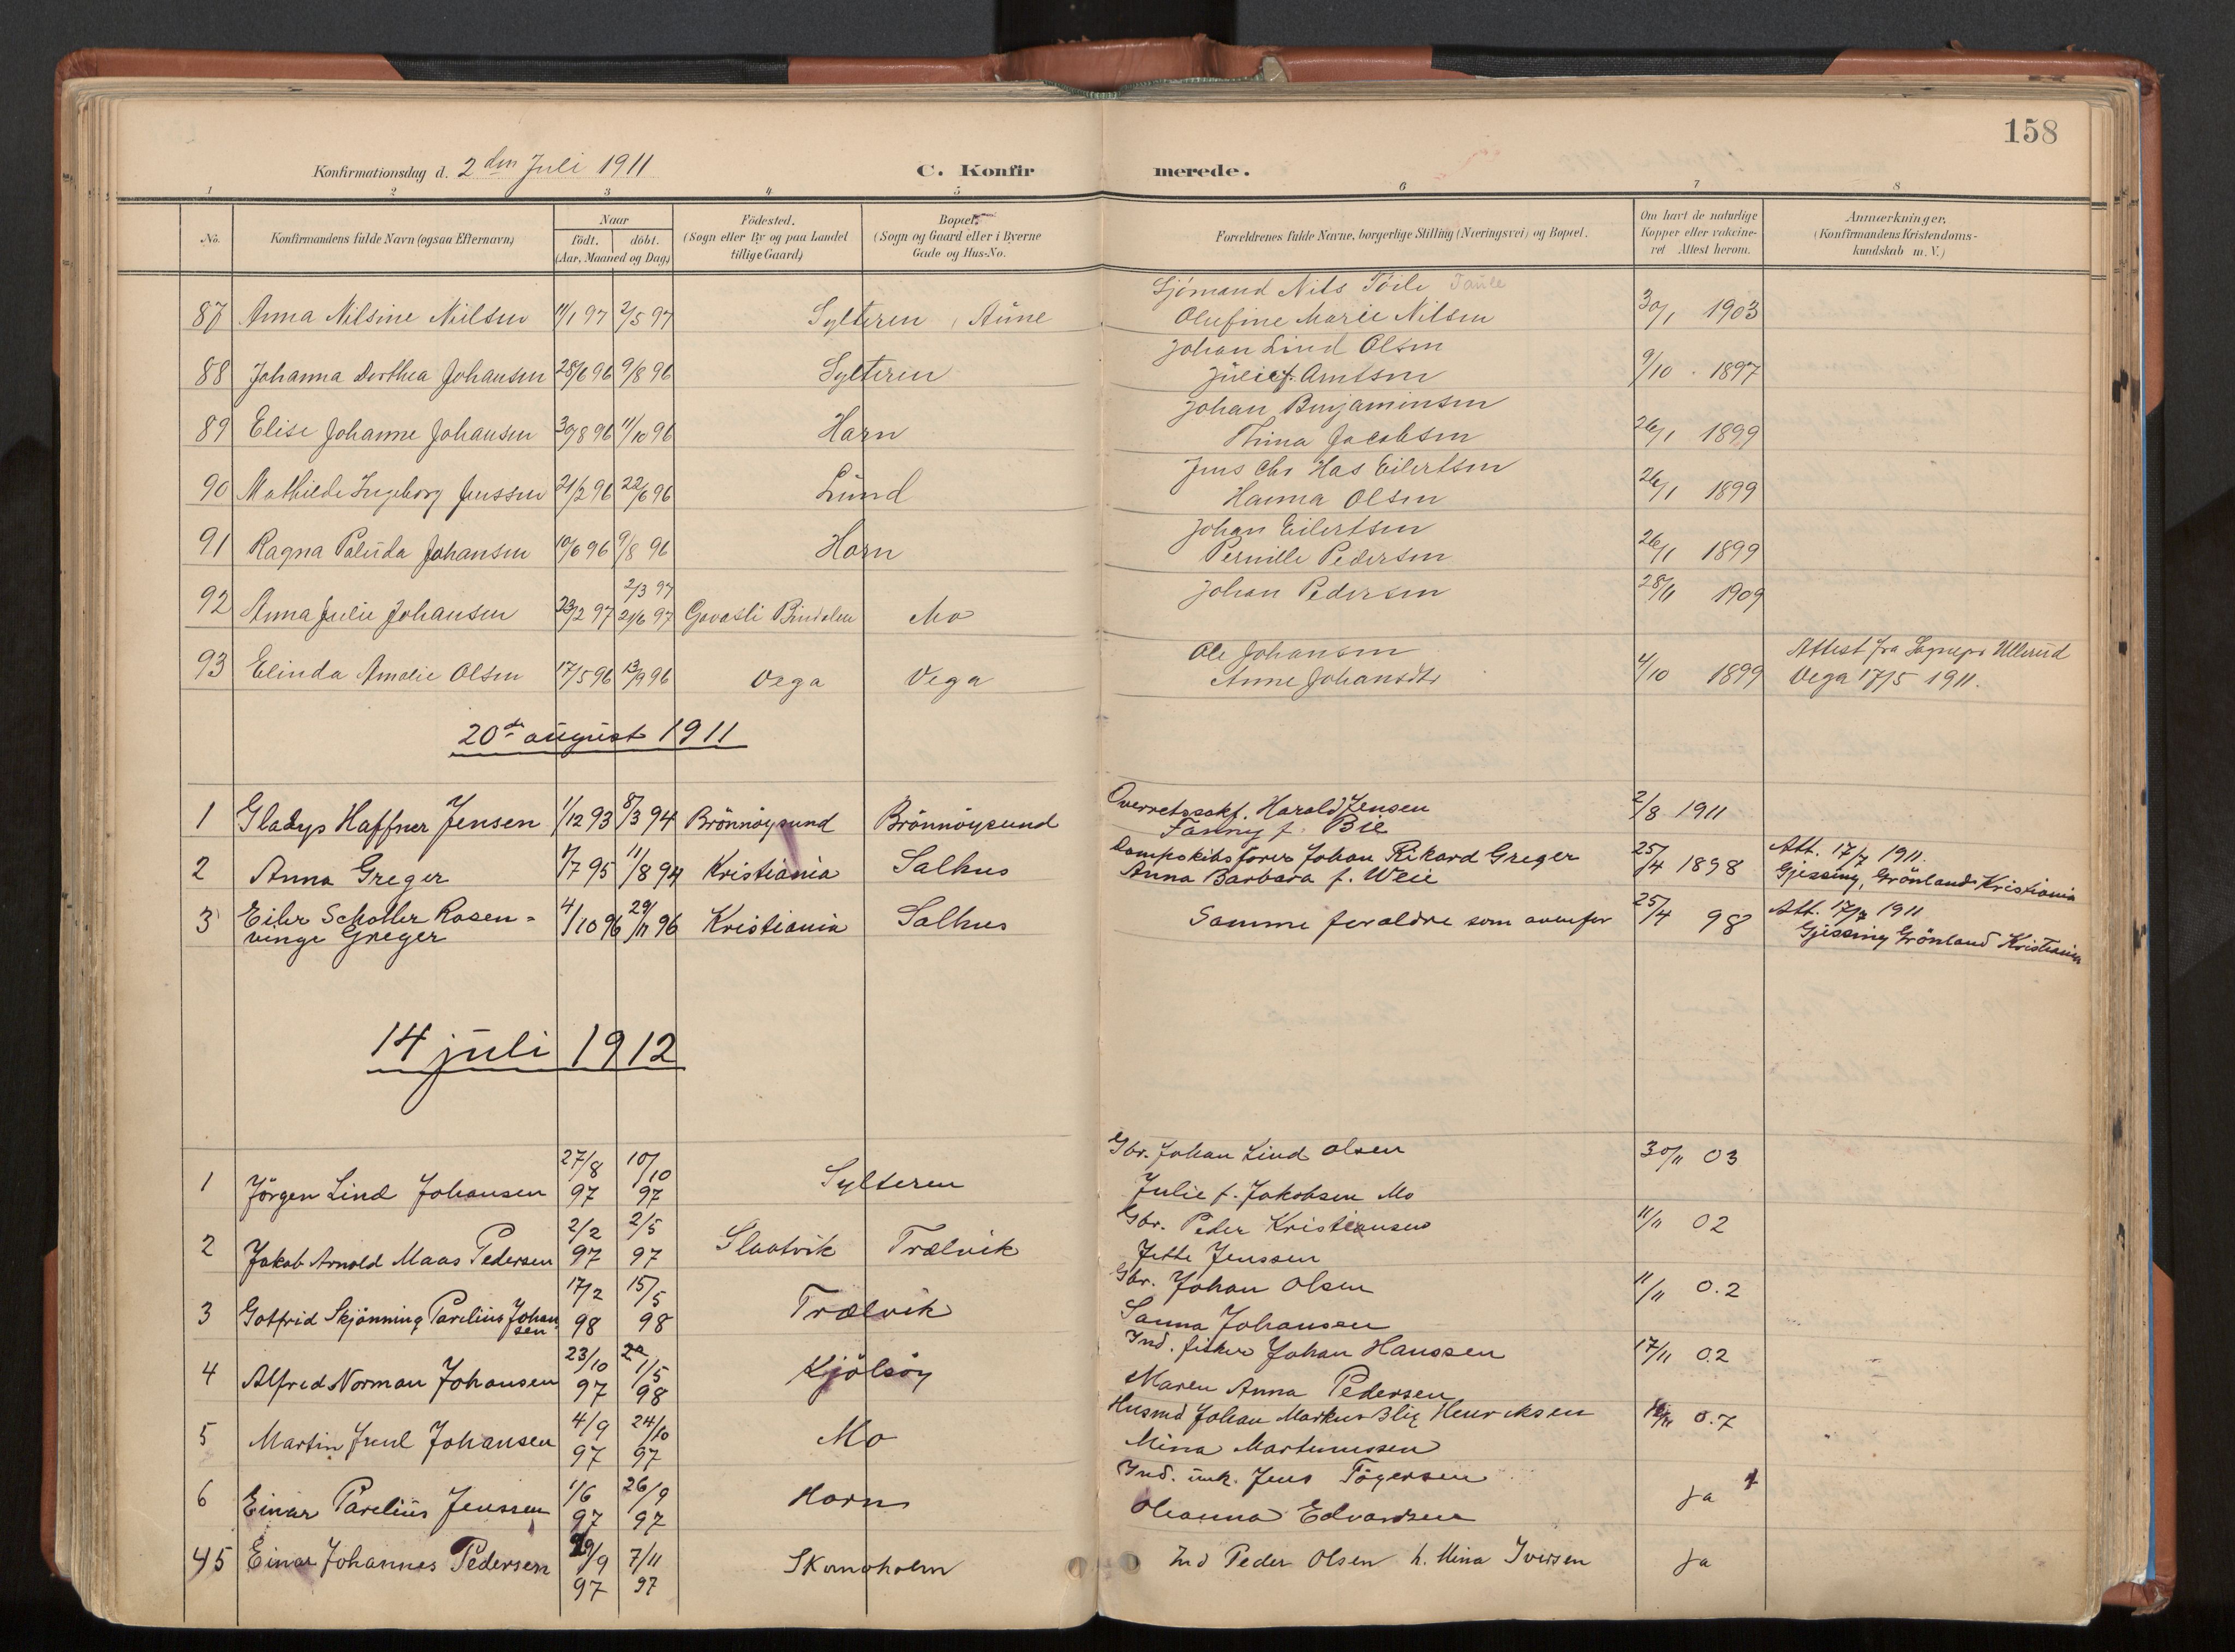 158
Konfirmationsdag d. 2den Juli 1911
C. Konfirmerede.
1 2 3 4 5 6 7 8
No.
Konfirmandens fulde Navn (ogsaa Efternavn)
Naar
födt. döbt.
(Aar, Maaned og Dag)
Födested.
(Sogn eller By og paa Landet
tillige Gaard)
Bopæl.
(Sogn og Gaard eller i Byerne
Gade og Hus-No.
Forældrenes fulde Navne, borgerlige Stilling (Næringsvei) og Bopæl.
Om havt de naturlige
Kopper eller vakcine-
ret Attest herom.
Anmærkninger.
(Konfirmandens Kristendoms-
kundskab m. V.)
Sjömand Nils Taule
87 Anna Nilsine Nilsen 11/1 97 2/5 97 Sylteren, Aune Olufine Marie Nilsen 30/1 1903
Johan Lind Olsen
88 Johanna Dorthea Johansen 28/6 96 9/8 96 Sylteren Julie f. Arntsen 9/10 1897
Johan Benjaminsen
89 Elise Johanne Johansen 30/8 96 11/10 96 Horn Thina Jacobsen 26/1 1899
Jens Chr Has Eilertsen
90 Mathilde Ingeborg Jenssen 21/2 96 22/6 96 Lund Hanna Olsen 26/1 1899
Johan Eilertsen
91 Ragna Palüda Johansen 10/6 96 9/8 96 Horn Pernille Pedersen 26/1 1899
2/3 97
92 Anna Julie Johansen 23/2 97 21/6 97 Gavatli Bindalen Mo Johan Pedersen 28/11 1909
Ole Johansen Attest fra Sognepr Ullerud
93 Elinda Amalie Olsen 17/5 96 13/9 96 Vega Vega Anne Johansdtr 4/10 1899 Vega 17/5 1911.
20de august 1911
Overretssakf. Harald Jensen
1 Gladys Haffner Jensen 1/12 93 8/3 94 Brönnöysund Brönnöysund Fanny f. Bie 2/8 1911
Dampskibsförer Johan Rikard Greger Att. 17/7 1911.
2 Anna Greger 1/7 95 11/8 94 Kristiania Salhus Anna Barbara f. Weie 25/4 1898 Gjessing, Grönland Kristiania
3 Eiler Scholler Rosen- 4/10 96 29/11 96 Kristiania Salhus Samme foraldre som ovenfor 25/4 98 Att. 17/7 1911
vinge Greger Gjessing Grönland Kristiania
14 juli 1912
27/8 10/10 Gbr. Johan Lind Olsen 30/11 03
1 Jörgen Lind Johansen 97 97 Sylteren Julie f. Jakobsen Mo
2/2 2/5 Gbr. Peder Kristiansen 11/11 02
2 Jakob Arnold Maas Pedersen 97 97 Slaatvik Trælvik Jette Jenssen
17/2 15/5 Gbr. Johan Olsen 11/11 0.2
3 Gotfrid Skjönning Parelius Johan 98 98 Trælvik Sanna Johansen
sen
23/10 1/5 Ind. fisker Johan Hanssen 17/11 0.2
4 Alfred Norman Johansen 97 98 Kjölsöy Maren Anna Pedersen
4/9 24/10 Husmd Johan Markus Blix Henriksen 0.7
5 Martin Juul Johansen 97 97 Mo Mina Martinussen
1/6 26/9 Ind. Jens Tögersen
6 Einar Parelius Jenssen 97 97 Horn Oleanna Edvardsen ja
45 Einar Johannes Pedersen 29/9 7/11 Skomoholm Ind Peder Olsen h. Mina Iversen ja
97 97